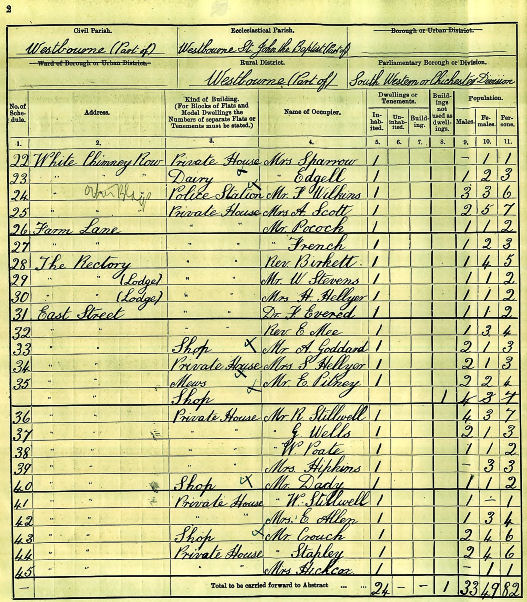 2
Civil Parish. Ecclesiastical Parish. Borough or Urban District.
Westbourne (Part of) Westbourne St. John the Baptist (Part of)
Ward of Borough or Urban District. Rural District. Parliamentary Borough or Division.
Westbourne (Part of) South Western or Chichester Division
No. of Schedule. Address. Kind of Building. (For Blocks of Flats and Model Dwellings the Numbers of separate Flats or Tenements must be stated.) Name of Occupier. Dwellings or Tenements. Inhabited. Uninhabited. Building. Buildings not used as dwellings. Population. Males. Females. Persons.
1. 2. 3. 4. 5. 6. 7. 8. 9. 10. 11.
22 White Chimney Row Private House Mrs Sparrow 1 - 1 1
23 " " Dairy " Edgell 1 1 2 3
24 " " Police Station Mr. F Wilkins 1 3 3 6
25 " " Private House Mrs A Scott 1 2 5 7
26 Farm Lane " " Mr. Pocock 1 1 1 2
27 " " " " " French 1 1 2 3
28 The Rectory " " Rev. Birkett 1 1 4 5
29 " " (Lodge) " " Mr. W Stevens 1 1 1 2
30 " " (Lodge) " " Mrs H. Hellyer 1 1 1 2
31 East Street " " Dr. F Evered 1 1 1 2
32 " " " " Rev E Mee 1 1 3 4
33 " " Shop Mr A Goddard 1 2 1 3
34 " " Private House Mrs S Hellyer 1 2 1 3
35 " " Mews Mr. E Pitney 1 2 2 4
Shop 1 4 3 7
36 " " Private House Mr R Stillwell 1 4 3 7
37 " " " " " G Wells 1 2 1 3
38 " " " " " W Poate 1 1 1 2
39 " " " " Mrs. Hipkins 1 - 3 3
40 " " Shop Mr. Dady 1 1 1 2
41 " " Private House " W Stillwell 1 1 - 1
42 " " " " Mrs. E Allen 1 1 3 4
43 " " Shop Mr Crouch 1 2 4 6
44 " " Private House " Stapley 1 2 4 6
45 " " " " Mrs Hickcox 1 - 1 1
- Total to be carried forward to Abstract 24 - - 1 33 49 82